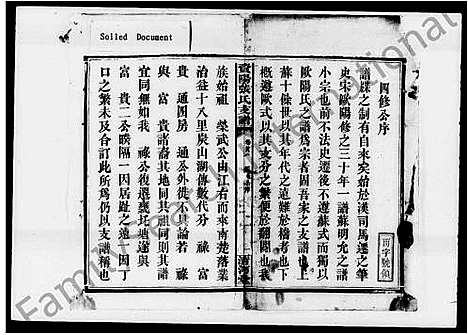 Soiled Document
四修公序
譜諜之制有自來矣始於漢司馬遷之筆
史宋歐陽修之三十年一譜蘇明允之譜
小宗也亦不法史遷後不遵蘇式而同
歐陽氏之譜爲宗者固吾家之支譜也上
蘇十餘世以其年代之遠難於稽者也下
概遵歐式以其支分之繁便於翻閱也我
資陽張氏支譜
清河堂
族始祖 榮武公由江右而來南楚落業
治益十八里炭山湖傳數代分 祿 富
貴 通四房 通公外徙不計論若 祿
與 富 貴諸裔其地同其歸同則其譜
宜同無如我 祿公後遷甕圫地遂與
富 貴二公睽隔一因居址之遠一因丁
口之繁未及合訂此所爲仍以支譜稱也
FamilySearch International